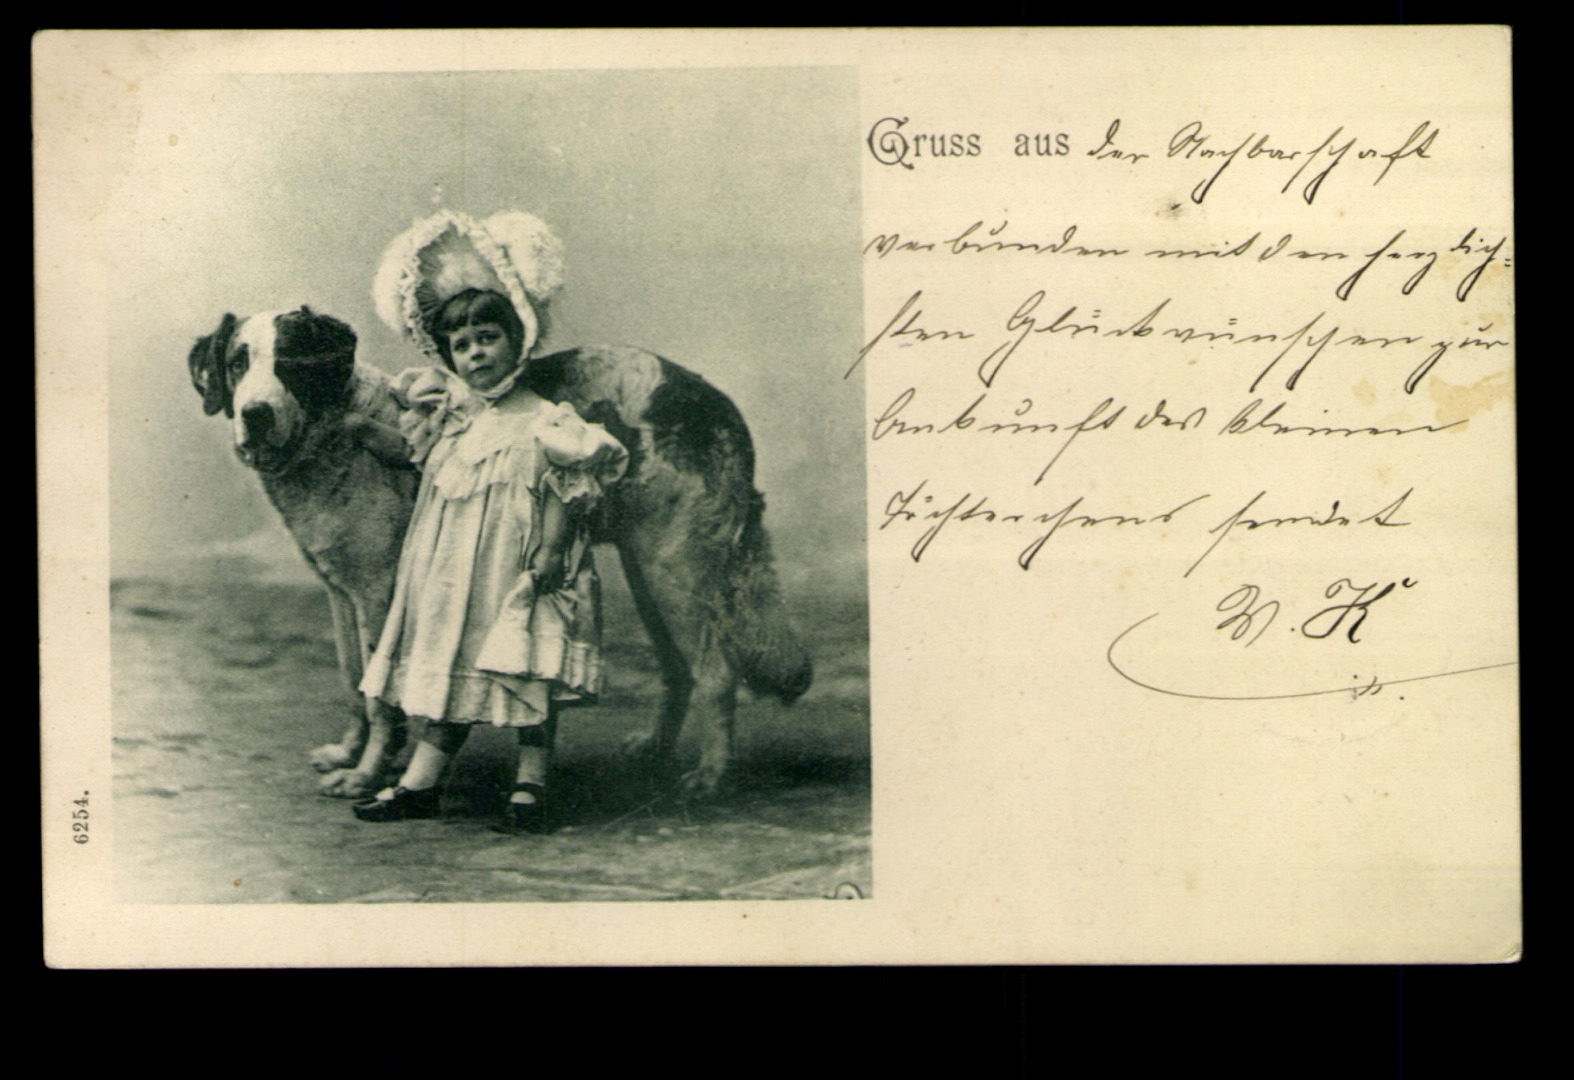 Gruss aus der Nachbarschaft
verbunden mit den herzlich-
sten Glückwünschen zur
Ankunft des kleinen
Töchterchens sendet
W. K
6254.